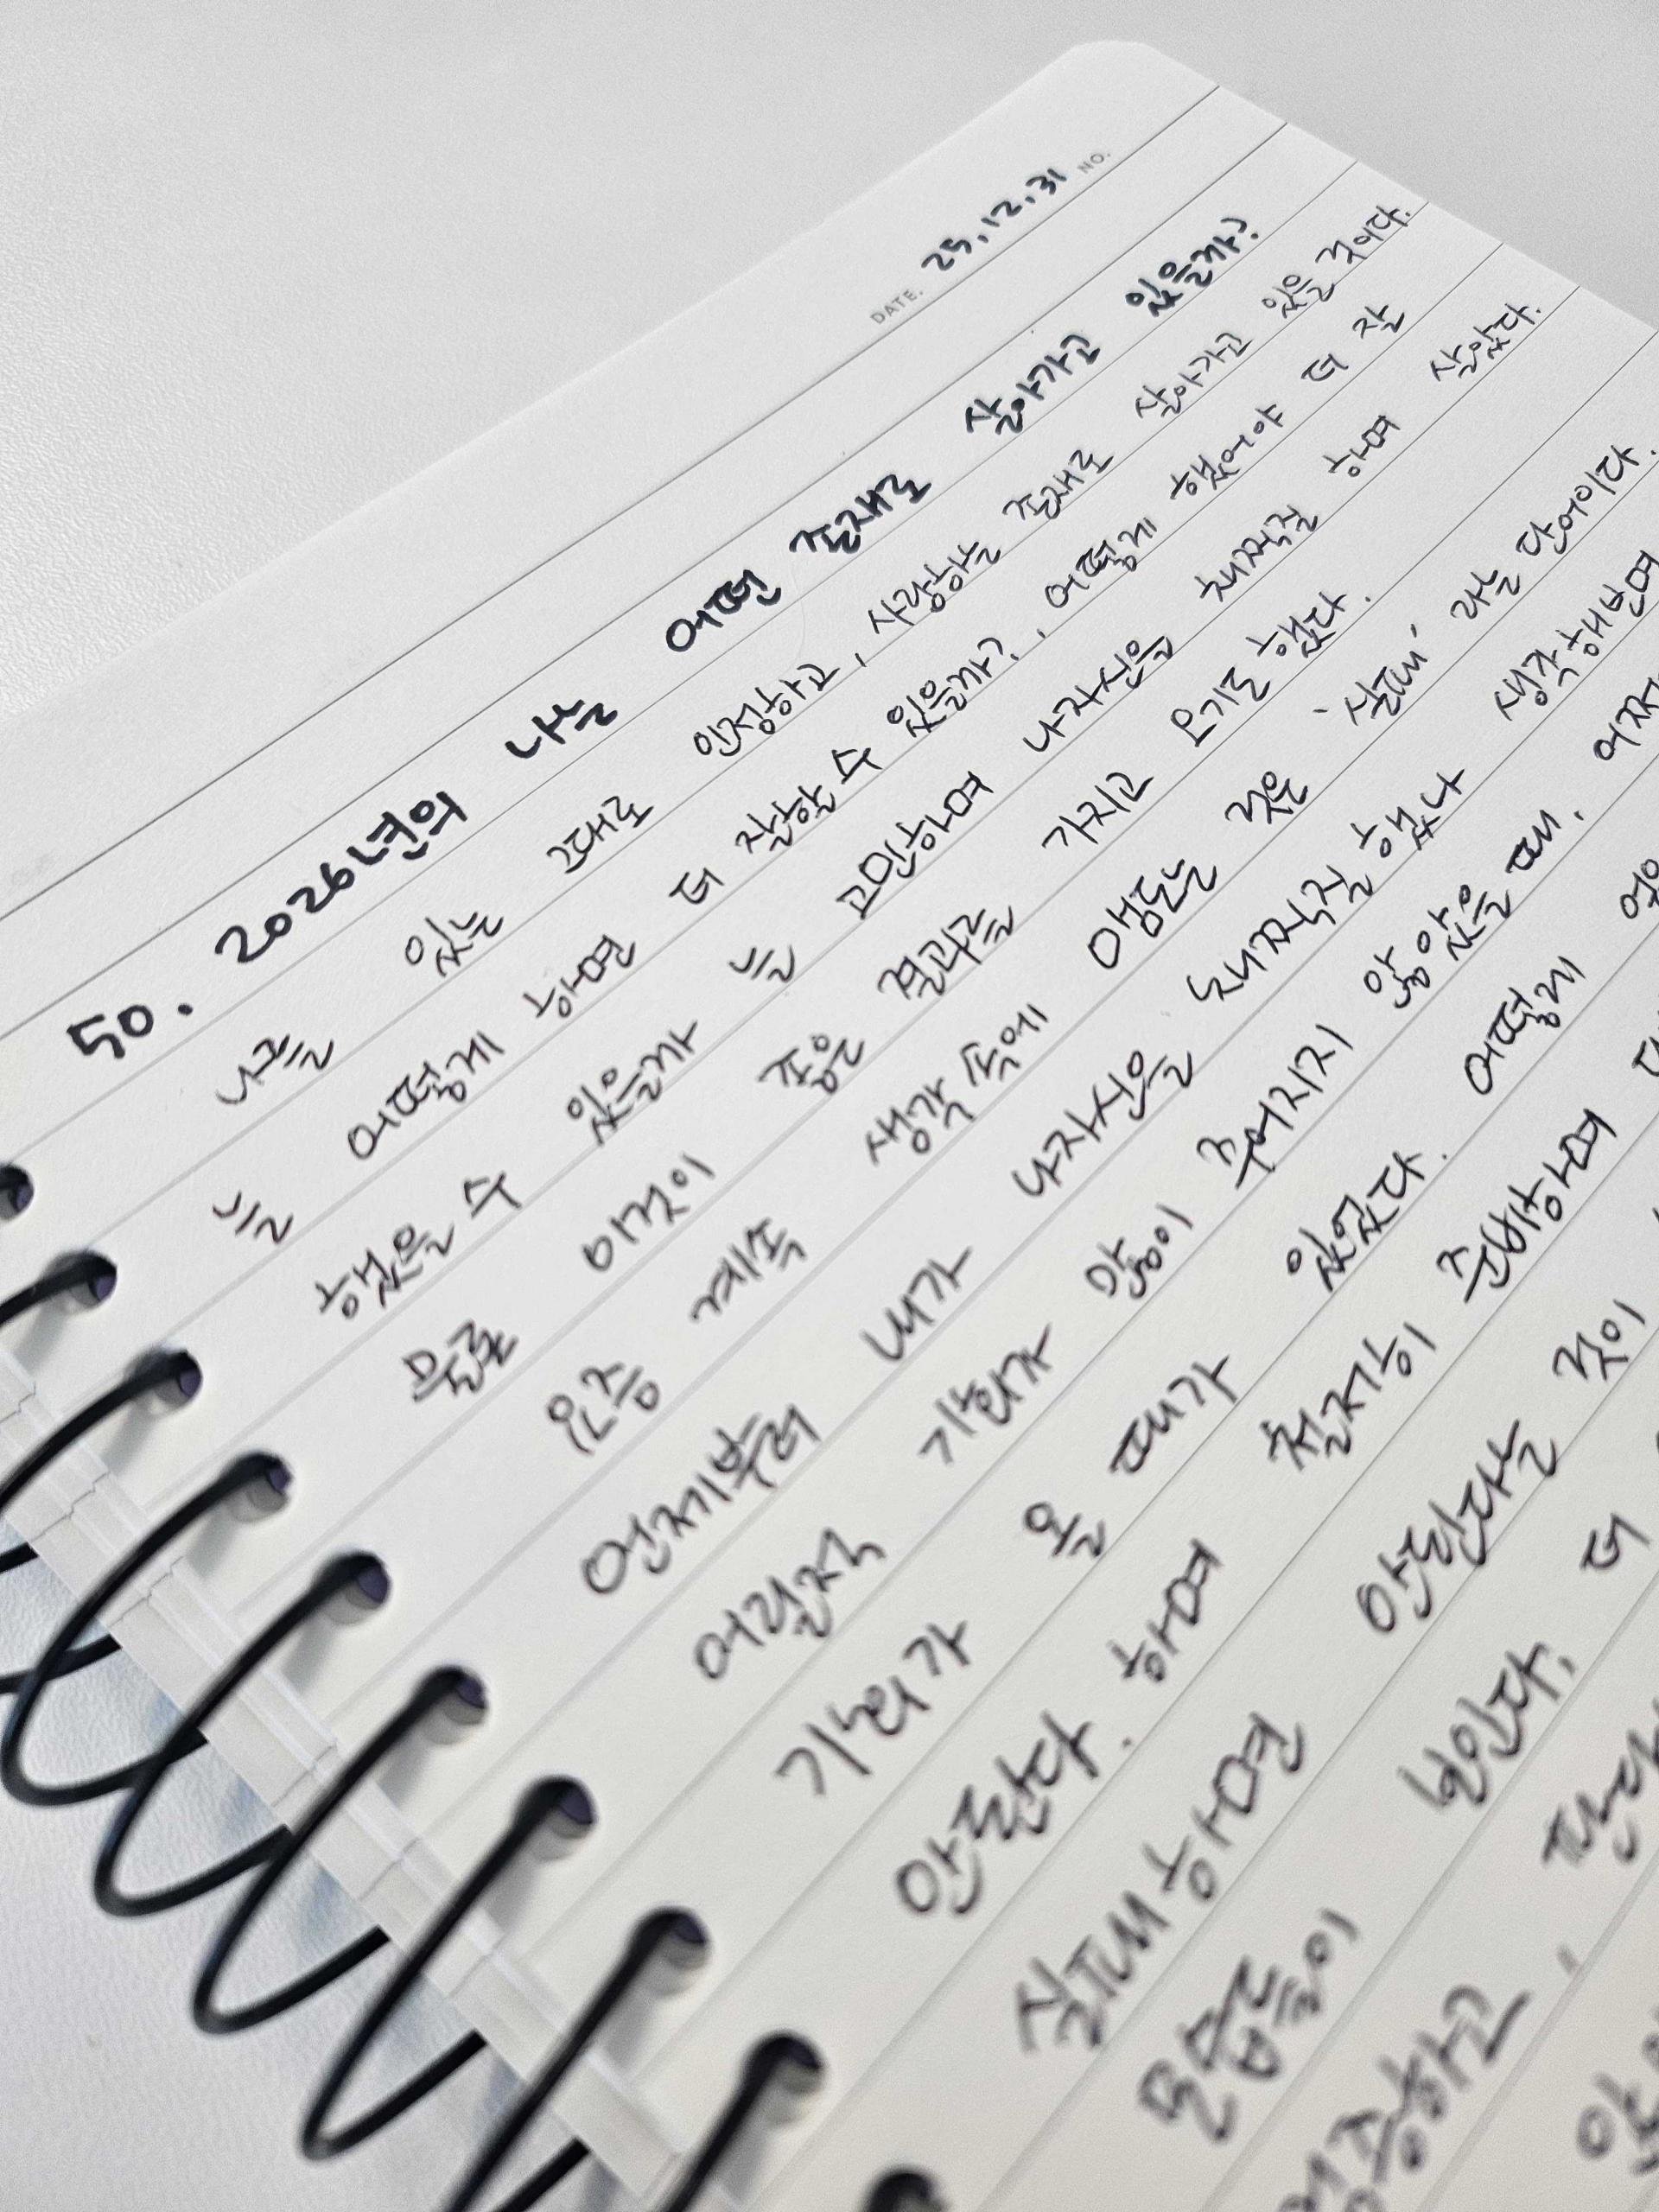 DATE. 25.12.31 NO.
50. 2026년의 나는 어떤 존재로 살아가고 있을까?
나를 있는 그대로 인정하고, 사랑하는 존재로 살아가고 있을 것이다.
늘 어떻게 하면 더 잘할 수 있을까?, 어떻게 했어야 더 잘
했을 수 있을까 늘 고민하며 나자신을 채찍질 하며 살았다.
물론 이것이 좋은 결과를 가지고 오기도 했다.
요즘 계속 생각 속에 맴도는 것은 '실패' 라는 단어이다.
언제부터 내가 나자신을 채찍질 했나 생각해보면
어릴적 기회가 많이 주어지지 않았을 때, 어쩌
기회가 올 때가 있었다. 어떻게
안된다. 하며 철저히 준비하며
실패하면 안된다는 것이
모습들이 보인다. 더